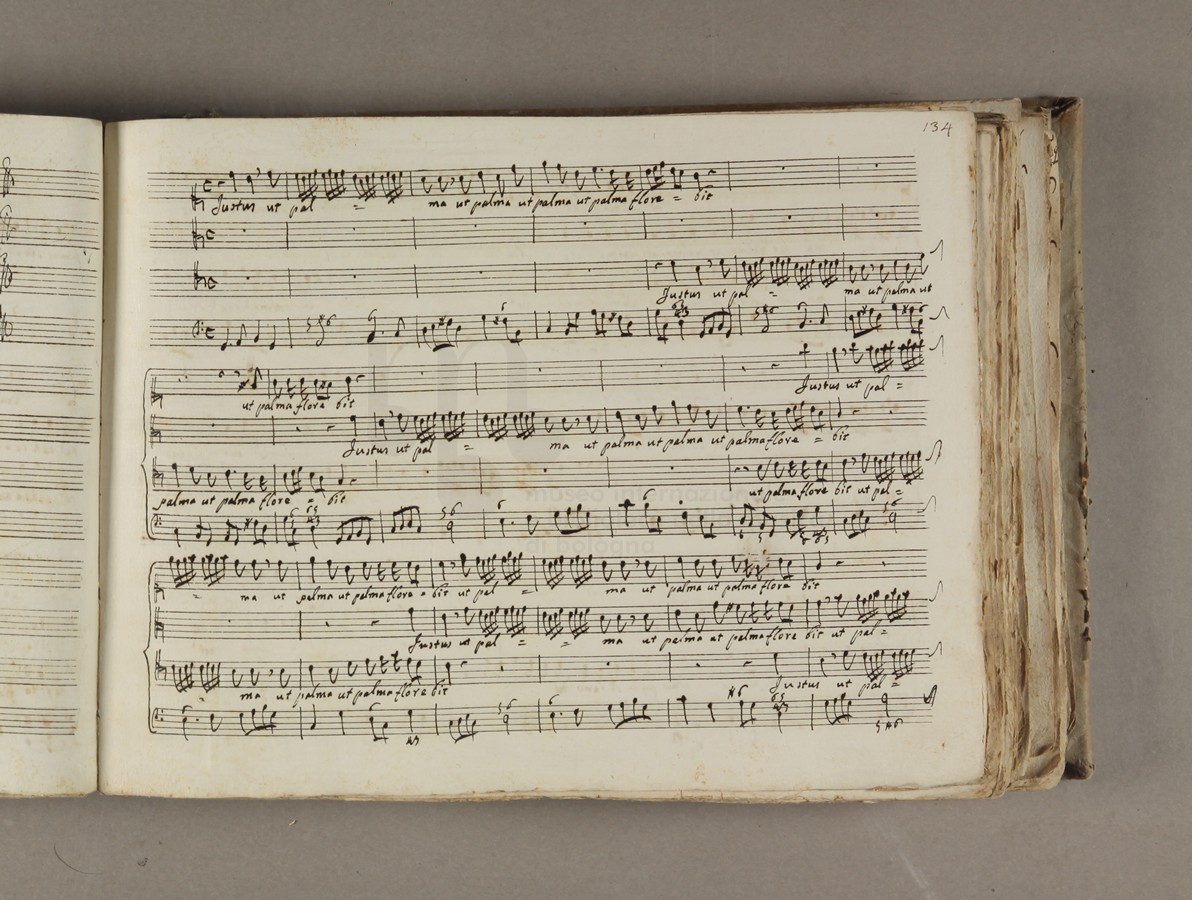 134
Justus ut pal = ma ut palma ut palma ut palma flore = bit
Justus ut pal = ma ut palma ut
Justus ut pal =
ut palma flore bit
Justus ut pal = ma ut palma ut palma ut palma flore = bit
palma ut palma flore = bit ut palma flore bit ut pal =
museo internazion
di bologna
= ma ut palma ut palma flore = bit ut pal = ma ut palma ut palma flore bit
Justus ut pal = = ma ut palma ut palma flore bit ut pal =
ma ut palma ut palma flore bit Justus ut pal =